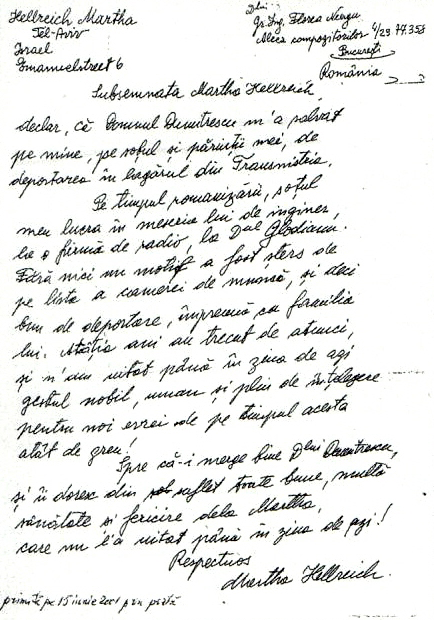 Hellreich Martha
Tel-Aviv
Israel
Emanuelstreet 6
Dlui
Gr. Ing. Florea Neagu
Aleea compozitorilor
București
România
Subsemnata Martha Hellreich
declar, că Domnul Dumitrescu m'a salvat
pe mine, pe soțul și părinții mei, de
deportarea în lagărul din Transnistria.
Pe timpul romanizării, soțul
meu lucra în meseria lui de inginer,
la o firmă de radio, la Dnul Glodianu.
Fără nici un motif a fost șters de
pe lista a camerei de muncă, și deci
bun de deportare, împreună cu familia
lui. Atâția ani au trecut de atunci,
și n'am uitat până în ziua de azi
gestul nobil, uman și plin de înțelegere
pentru noi evrei de pe timpul acesta
atât de greu!
Sper că-i merge bine Dlui Dumitrescu,
și îi doresc din suflet toate bune, multă
sănătate si fericire dela Martha,
care nu l'a uitat până în ziua de azi!
Respectuos
Martha Hellreich.
primită pe 15 iunie 2001 prin poștă